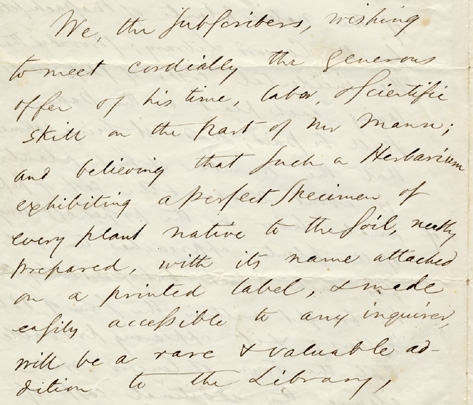 We, the Subscribers, wishing
to meet cordially the generous
offer of his time, labor, & scientific
skill on the part of Mr Mann;
and believing that such a Herbarium
exhibiting a perfect specimen of
every plant native to the soil, neatly
prepared, with its name attached
on a printed label, & made
easily accessible to any inquirer,
will be a rare & valuable ad-
dition to the Library,